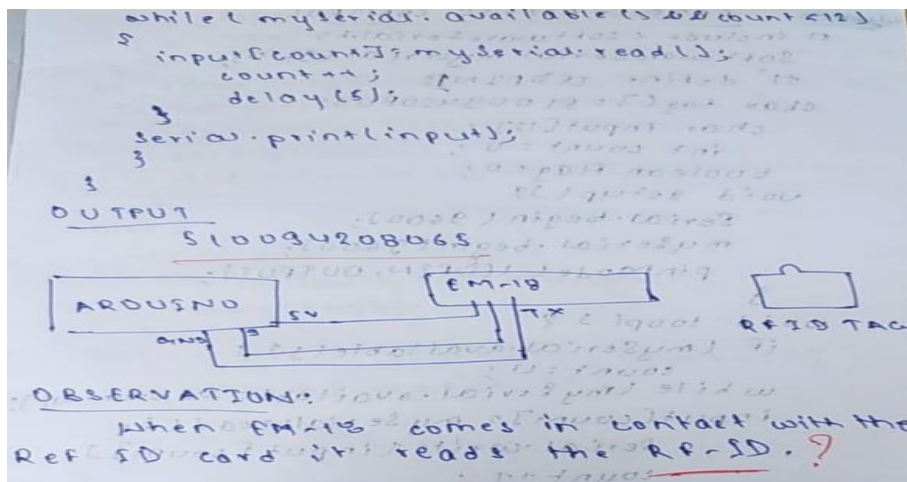 while( myserial. available() && count <12)
{
input[count]=myserial.read();
count ++;
delay(5);
}
serial.print(input);
}
}
OUTPUT
510094208065
ARDUINO
EM-18
5V
TX
GND
9
RFID TAG
OBSERVATION:
When EM-18 comes in contact with the
Ref ID card it reads the RF-ID. ?